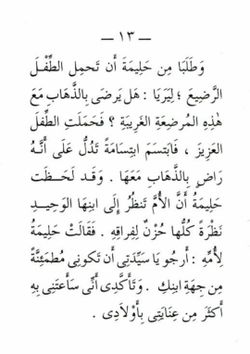 — ١٣ —
وَطَلَبَا مِن حَلِيمَةَ أَن تَحمِل الطِّفْلَ
الرَّضِيعَ ؛ لِيَرَيَا : هَل يَرضَى بِالذَّهَابِ مَعَ
هٰذِهِ المُرضِعَةِ الغَرِيبَةِ ؟ فَحَمَلَتِ الطِّفلَ
العَزِيزَ ، فَابتَسَمَ ابتِسَامَةً تَدُلُّ عَلَى أَنَّهُ
رَاضٍ بِالذَّهَابِ مَعَهَا . وَقَد لَحَظَت
حَلِيمَةُ أَنَّ الأُمَّ تَنظُرُ إِلَى ابنِهَا الوَحِيدِ
نَظْرَةً كُلُّهَا حُزْنٌ لِفِرَاقِهِ . فَقَالَت حَلِيمَةُ
لِأُمِّهِ : أَرجُو يَا سَيِّدَتِى أَن تَكُونِى مُطمَئِنَّةً
مِن جِهَةِ ابنِكِ . وَتَأَكَّدِى أَنِّى سَأَعتَنِى بِهِ
أَكثَرَ مِن عِنَايَتِى بِأَوْلَادِى .